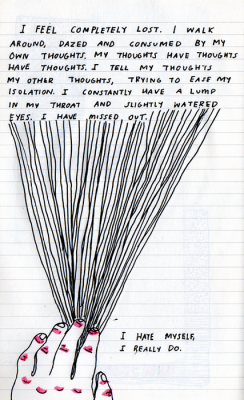 I FEEL COMPLETELY LOST. I WALK
AROUND, DAZED AND CONSUMED BY MY
OWN THOUGHTS. MY THOUGHTS HAVE THOUGHTS
HAVE THOUGHTS. I TELL MY THOUGHTS
MY OTHER THOUGHTS, TRYING TO EASE MY
ISOLATION. I CONSTANTLY HAVE A LUMP
IN MY THROAT AND SLIGHTLY WATERED
EYES. I HAVE MISSED OUT.
I HATE MYSELF,
I REALLY DO.